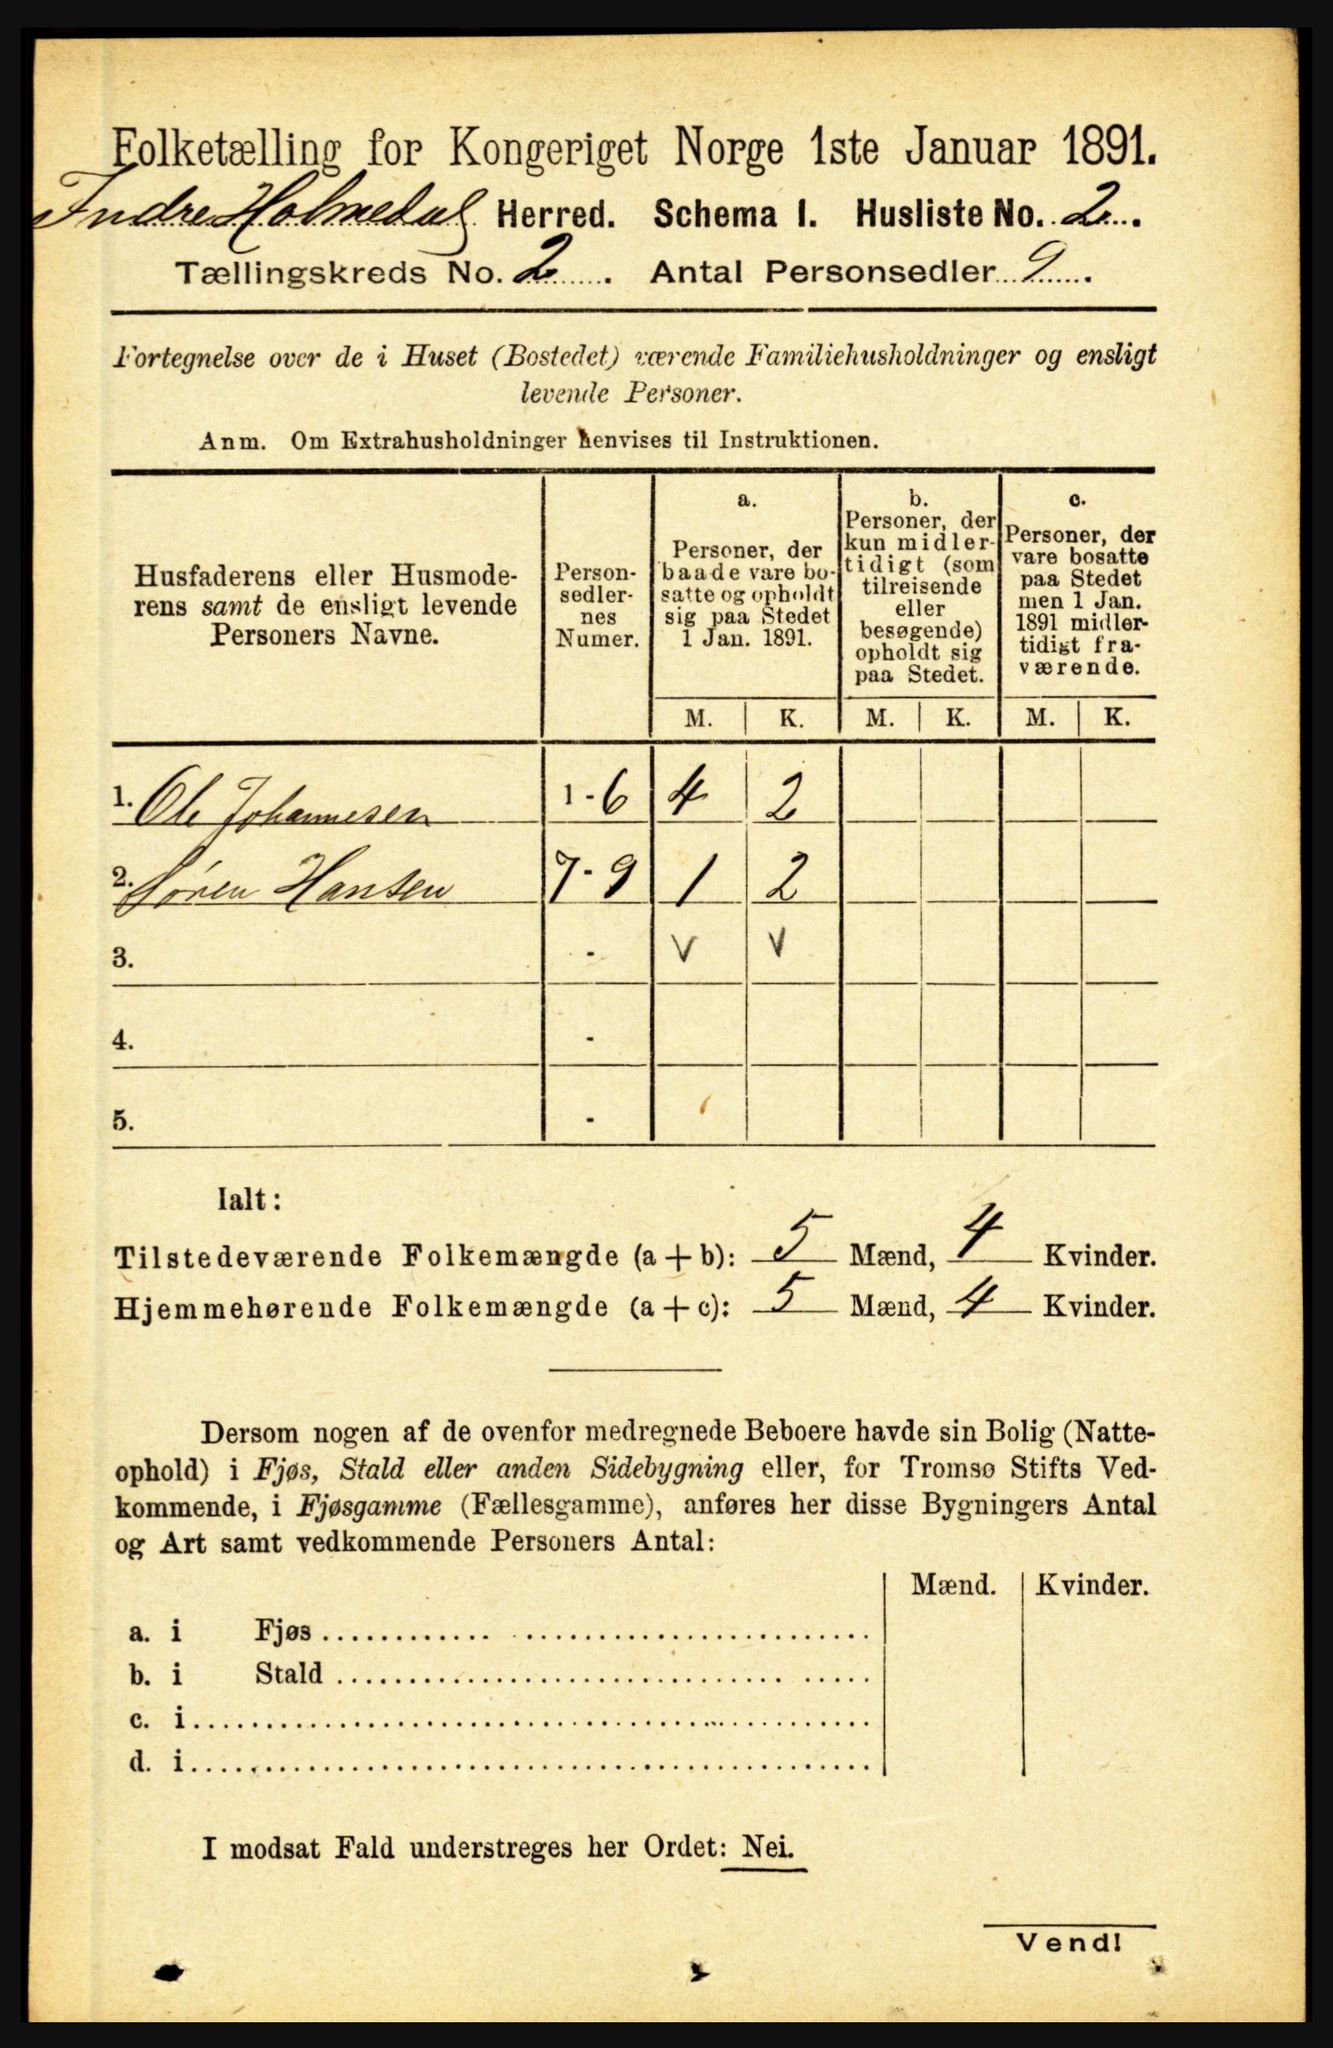 Folketælling for Kongeriget Norge 1ste Januar 1891.
Indre Holmedal Herred. Schema 1. Husliste No. 2.
Tællingskreds No. 2. Antal Personsedler 9.
Fortegnelse over de i Huset (Bostedet) værende Familiehusholdninger og ensligt
levende Personer.
Anm. Om Extrahusholdninger henvises til Instruktionen.
Husfaderens eller Husmode-
rens samt de ensligt levende
Personers Navne.
Person-
sedler-
nes
Numer.
a.
Personer, der
baade vare bo-
satte og opholdt
sig paa Stedet
1 Jan. 1891.
b.
Personer, der
kun midler-
tidigt (som
tilreisende
eller
besøgende)
opholdt sig
paa Stedet.
c.
Personer, der
vare bosatte
paa Stedet
men 1 Jan.
1891 midler-
tidigt fra-
værende.
M. K. M. K. M. K.
1. Ole Johannesen 1-6 4 2
2. Søren Hansen 7-9 1 2
3. - v v
4. -
5. -
Ialt:
Tilstedeværende Folkemængde (a+b): 5 Mænd, 4 Kvinder.
Hjemmehørende Folkemængde (a+c): 5 Mænd, 4 Kvinder.
Dersom nogen af de ovenfor medregnede Beboere havde sin Bolig (Natte-
ophold) i Fjøs, Stald eller anden Sidebygning eller, for Tromsø Stifts Ved-
kommende, i Fjøsgamme (Fællesgamme), anføres her disse Bygningers Antal
og Art samt vedkommende Personers Antal:
Mænd. Kvinder.
a. i Fjøs
b. i Stald
c. i
d. i
I modsat Fald understreges her Ordet: Nei.
Vend!